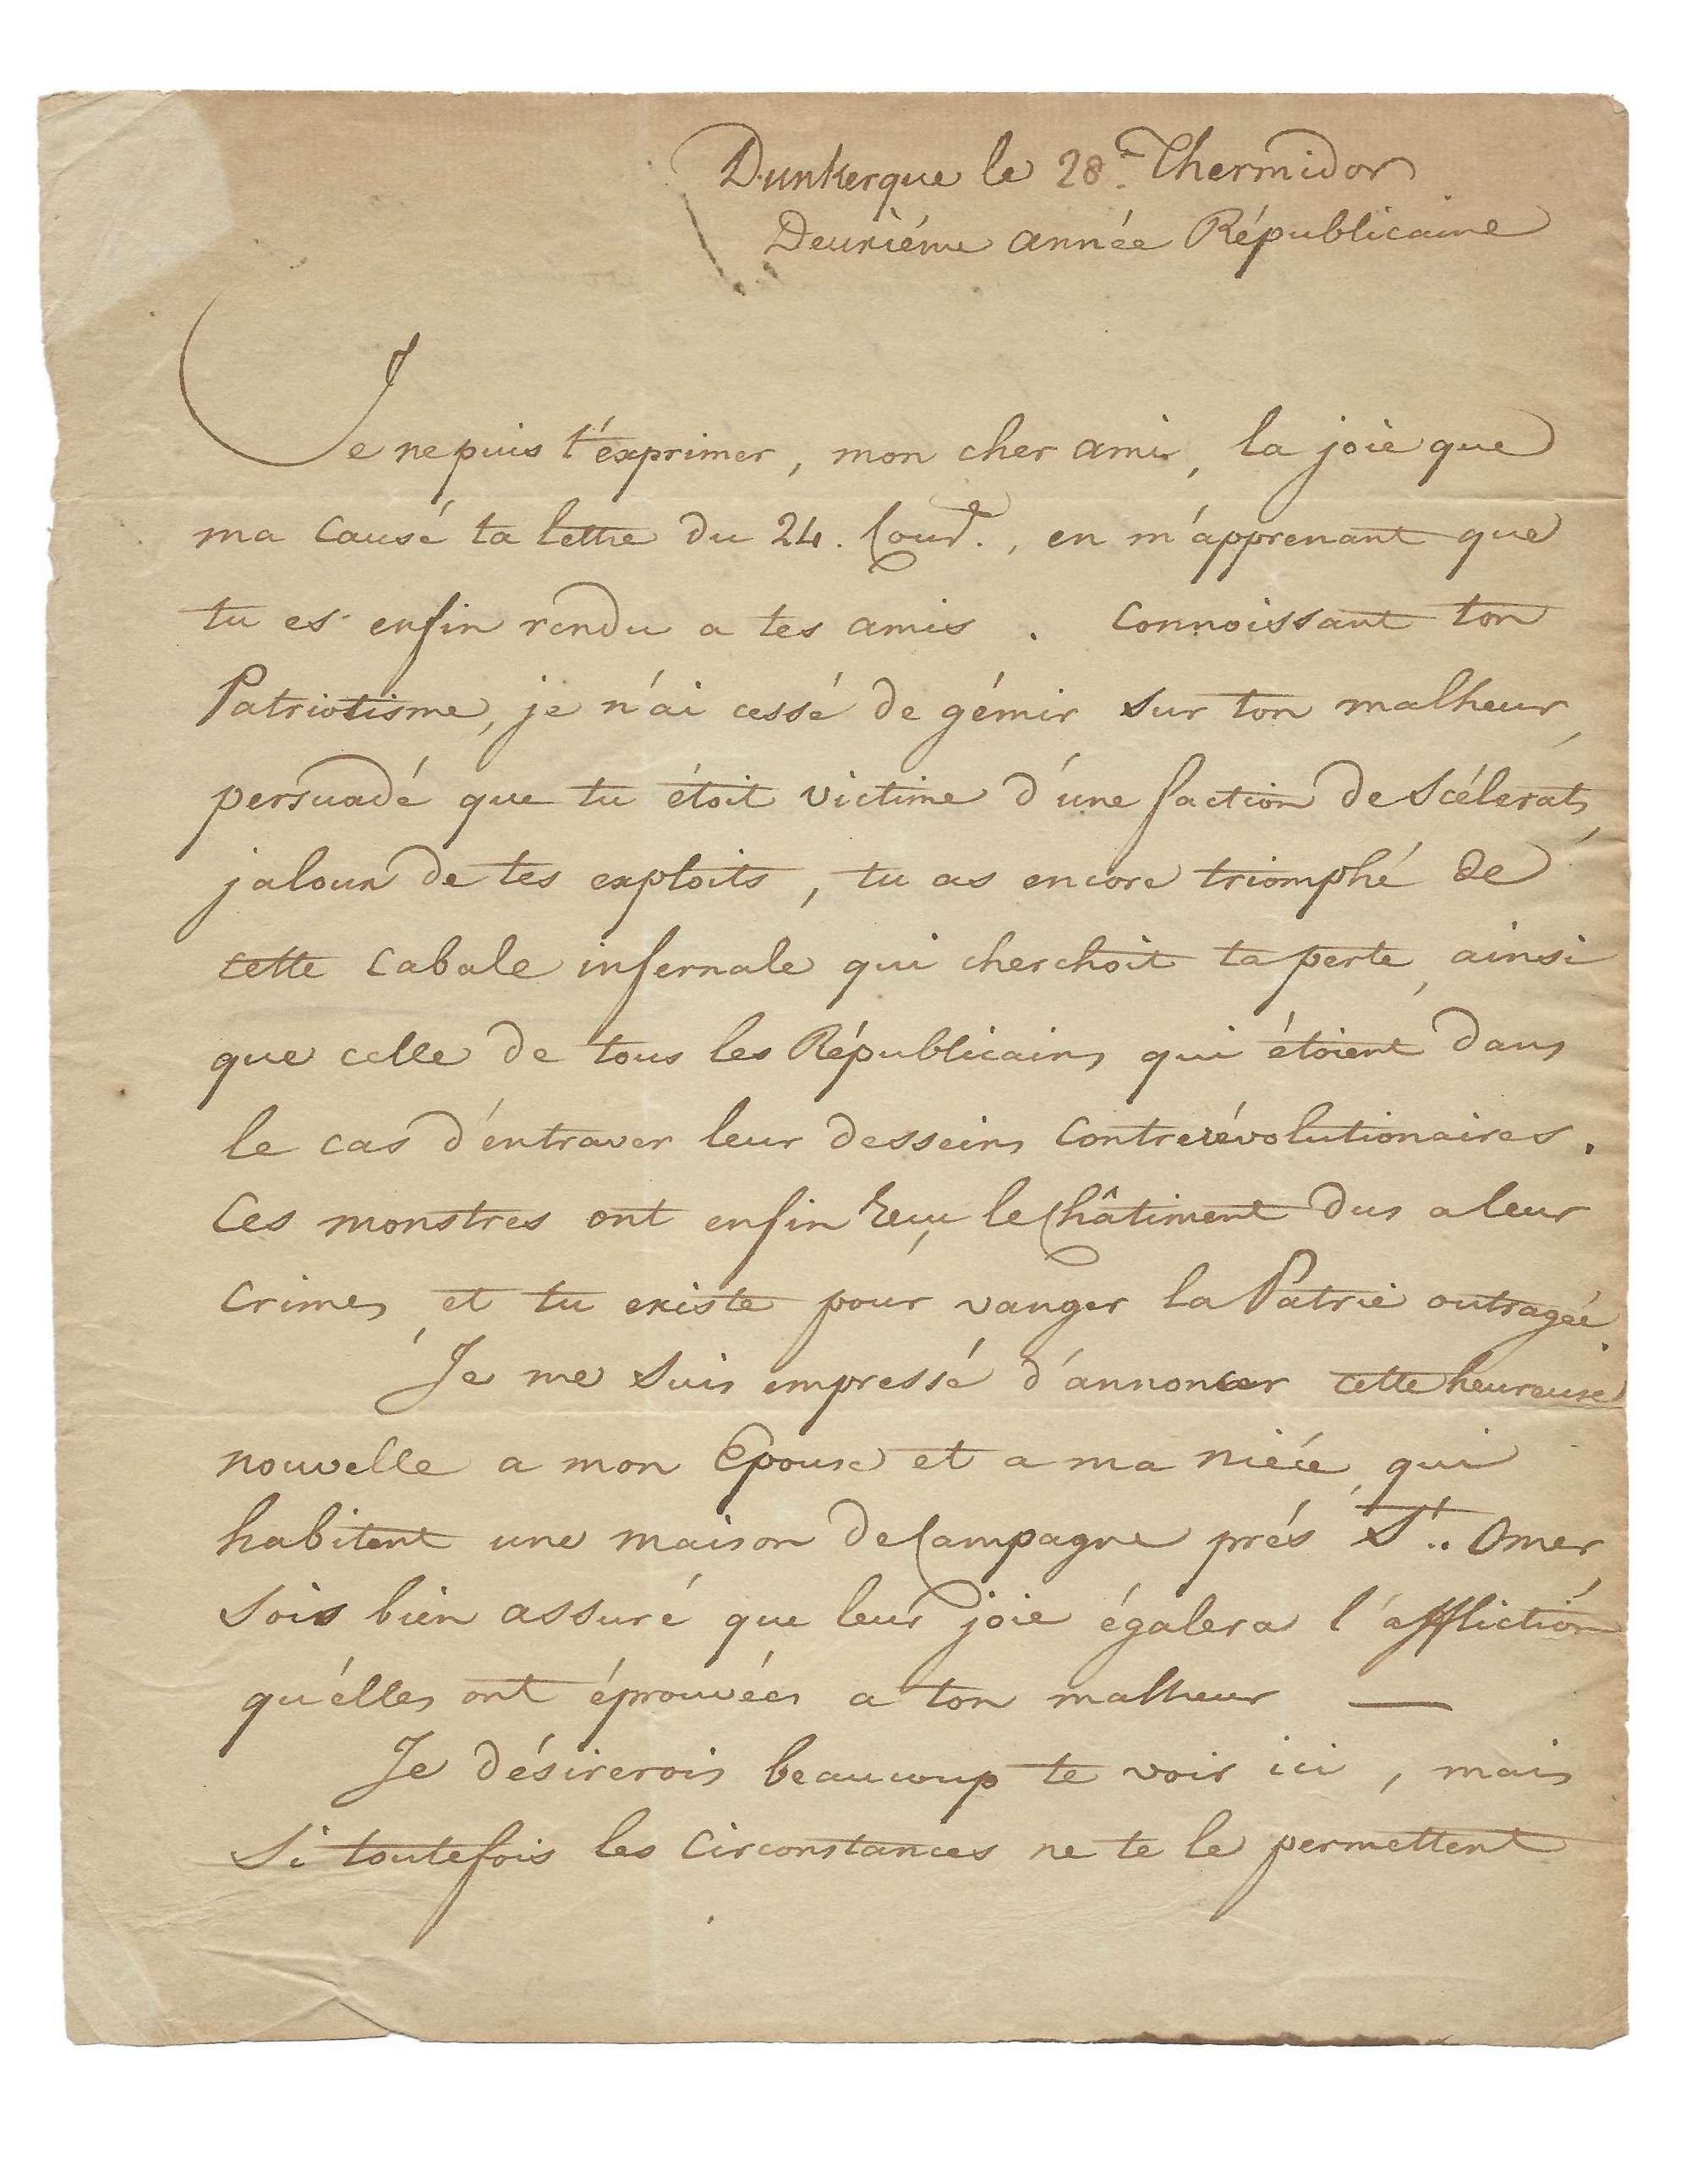 Dunkerque le 28e. Thermidor
Deuxiéme année Républicaine
Je ne puis t'éxprimer, mon cher ami, la joie que
ma causé ta lettre du 24. Cour.t., en m'apprenant que
tu es enfin rendu a tes amis . Connoissant ton
Patriotisme, je n'ai cessé de gémir sur ton malheur,
persuadé que tu étoit victime d'une faction de Scélerats,
jaloux de tes exploits, tu as encore triomphé de
cette Cabale infernale qui cherchoit ta perte, ainsi
que celle de tous les Républicains qui étoient dans
le cas d'entraver leur desseins Contrerévolutionaires.
Ces monstres ont enfin reçu le Châtiment dus a leur
Crimes, et tu existe pour vanger la Patrie outragée.
Je me suis empressé d'annoncer cette heureuse
nouvelle a mon Epouse et a ma niéce, qui
habitent une maison de Campagne prés St. Omer,
sois bien assuré que leur joie égalera l'affliction
qu'élles ont éprouvées a ton malheur —
Je désirerois beaucoup te voir ici, mais
Si toutefois les Circonstances ne te le permettent